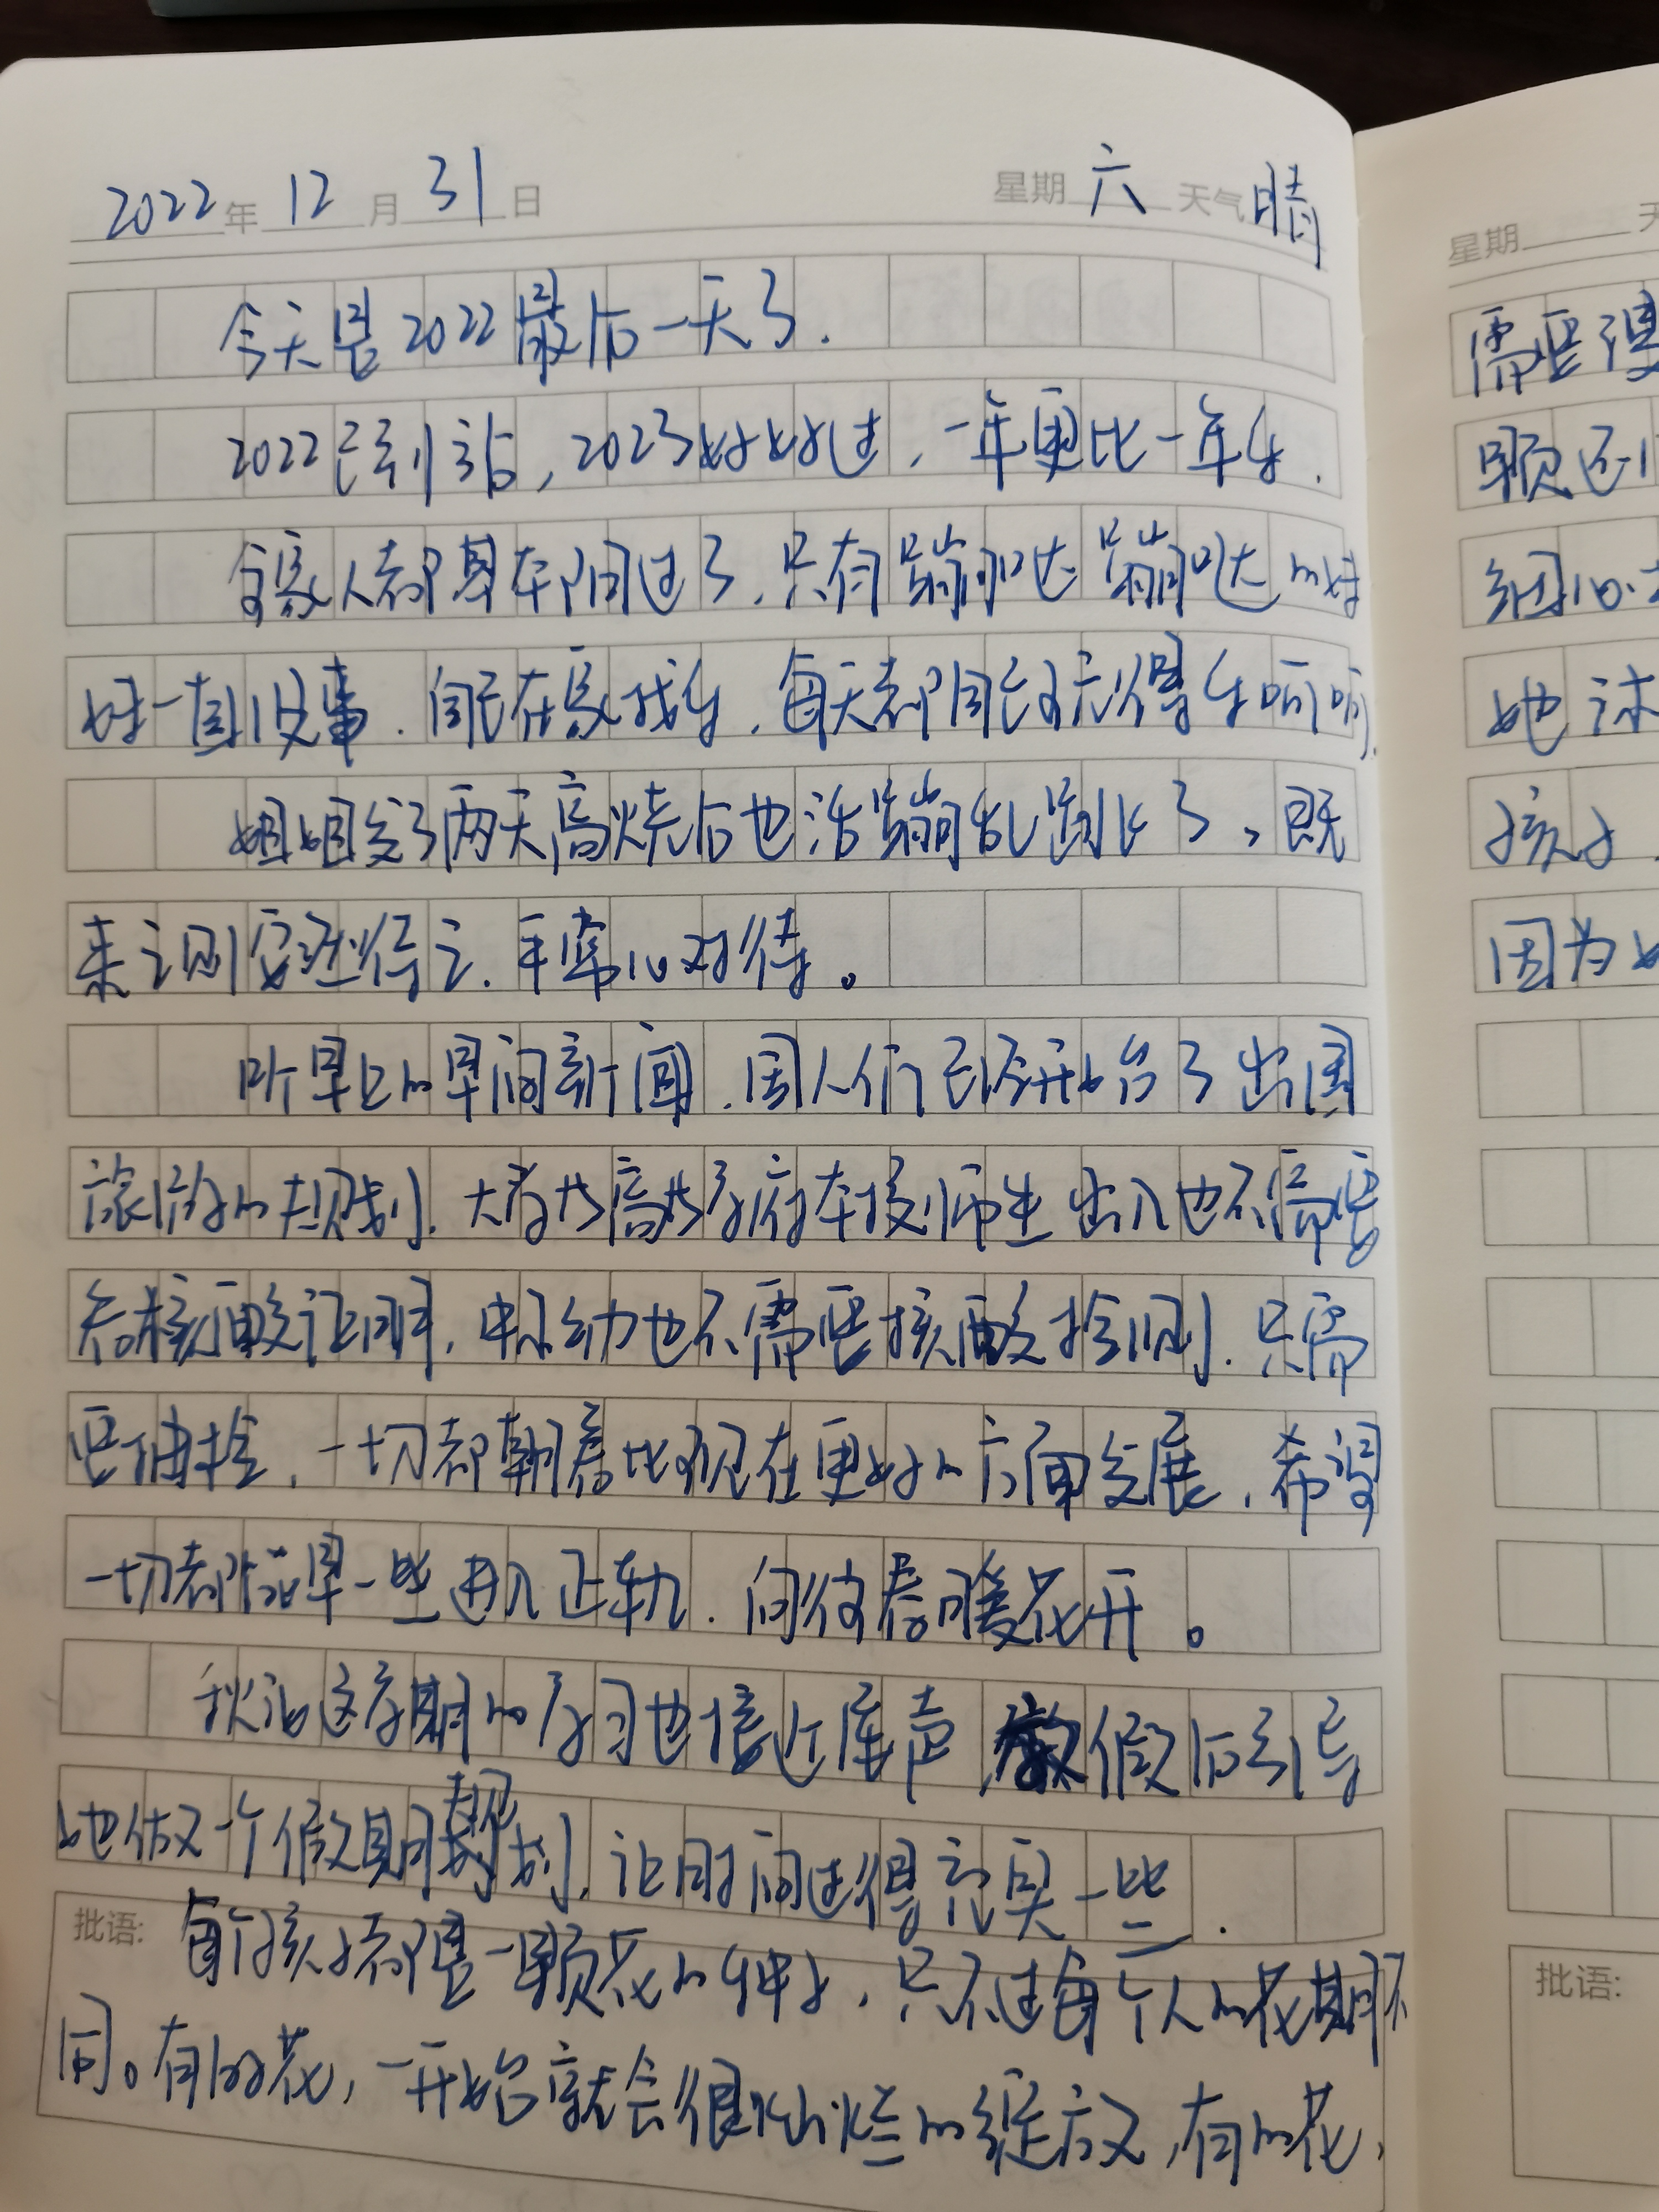 2022年12月31日 星期六 天气晴
今天是2022最后一天了.
2022已到站,2023好好过,一年更比一年好.
全家人都基本阳过了.只有蹦哒蹦哒的妹
妹一直没事.自己在家找乐,每天都自己玩得乐呵呵.
姐姐发了两天高烧后也活蹦乱跳了,既
来之则安之,平常心对待。
听早上的早间新闻.国人们已经开始了出国
旅游的规划.大为高学府本校师生出入也不需要
看核酸证明,中小幼也不需要核酸检测.只需
要抽检,一切都朝着比现在更好的方面发展,希望
一切都能早一些进入正轨.向彼春暖花开。
秋涵这学期的学习也接近尾声,放假后引导
她做一个假期规划,让时间过得充实一些.
批语:每个孩子都是一颗花的种子,只不过每个人的花期不
同。有的花,一开始就会很灿烂的绽放,有的花,
星期 天
需要漫
颗还
细心
她
孩子.
因为
批语: